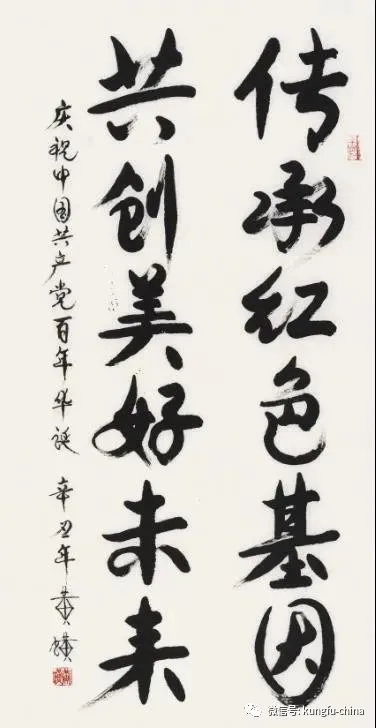 传承红色基因
共创美好未来
庆祝中国共产党百年华诞 辛丑年 黄
微信号: kungfu-china